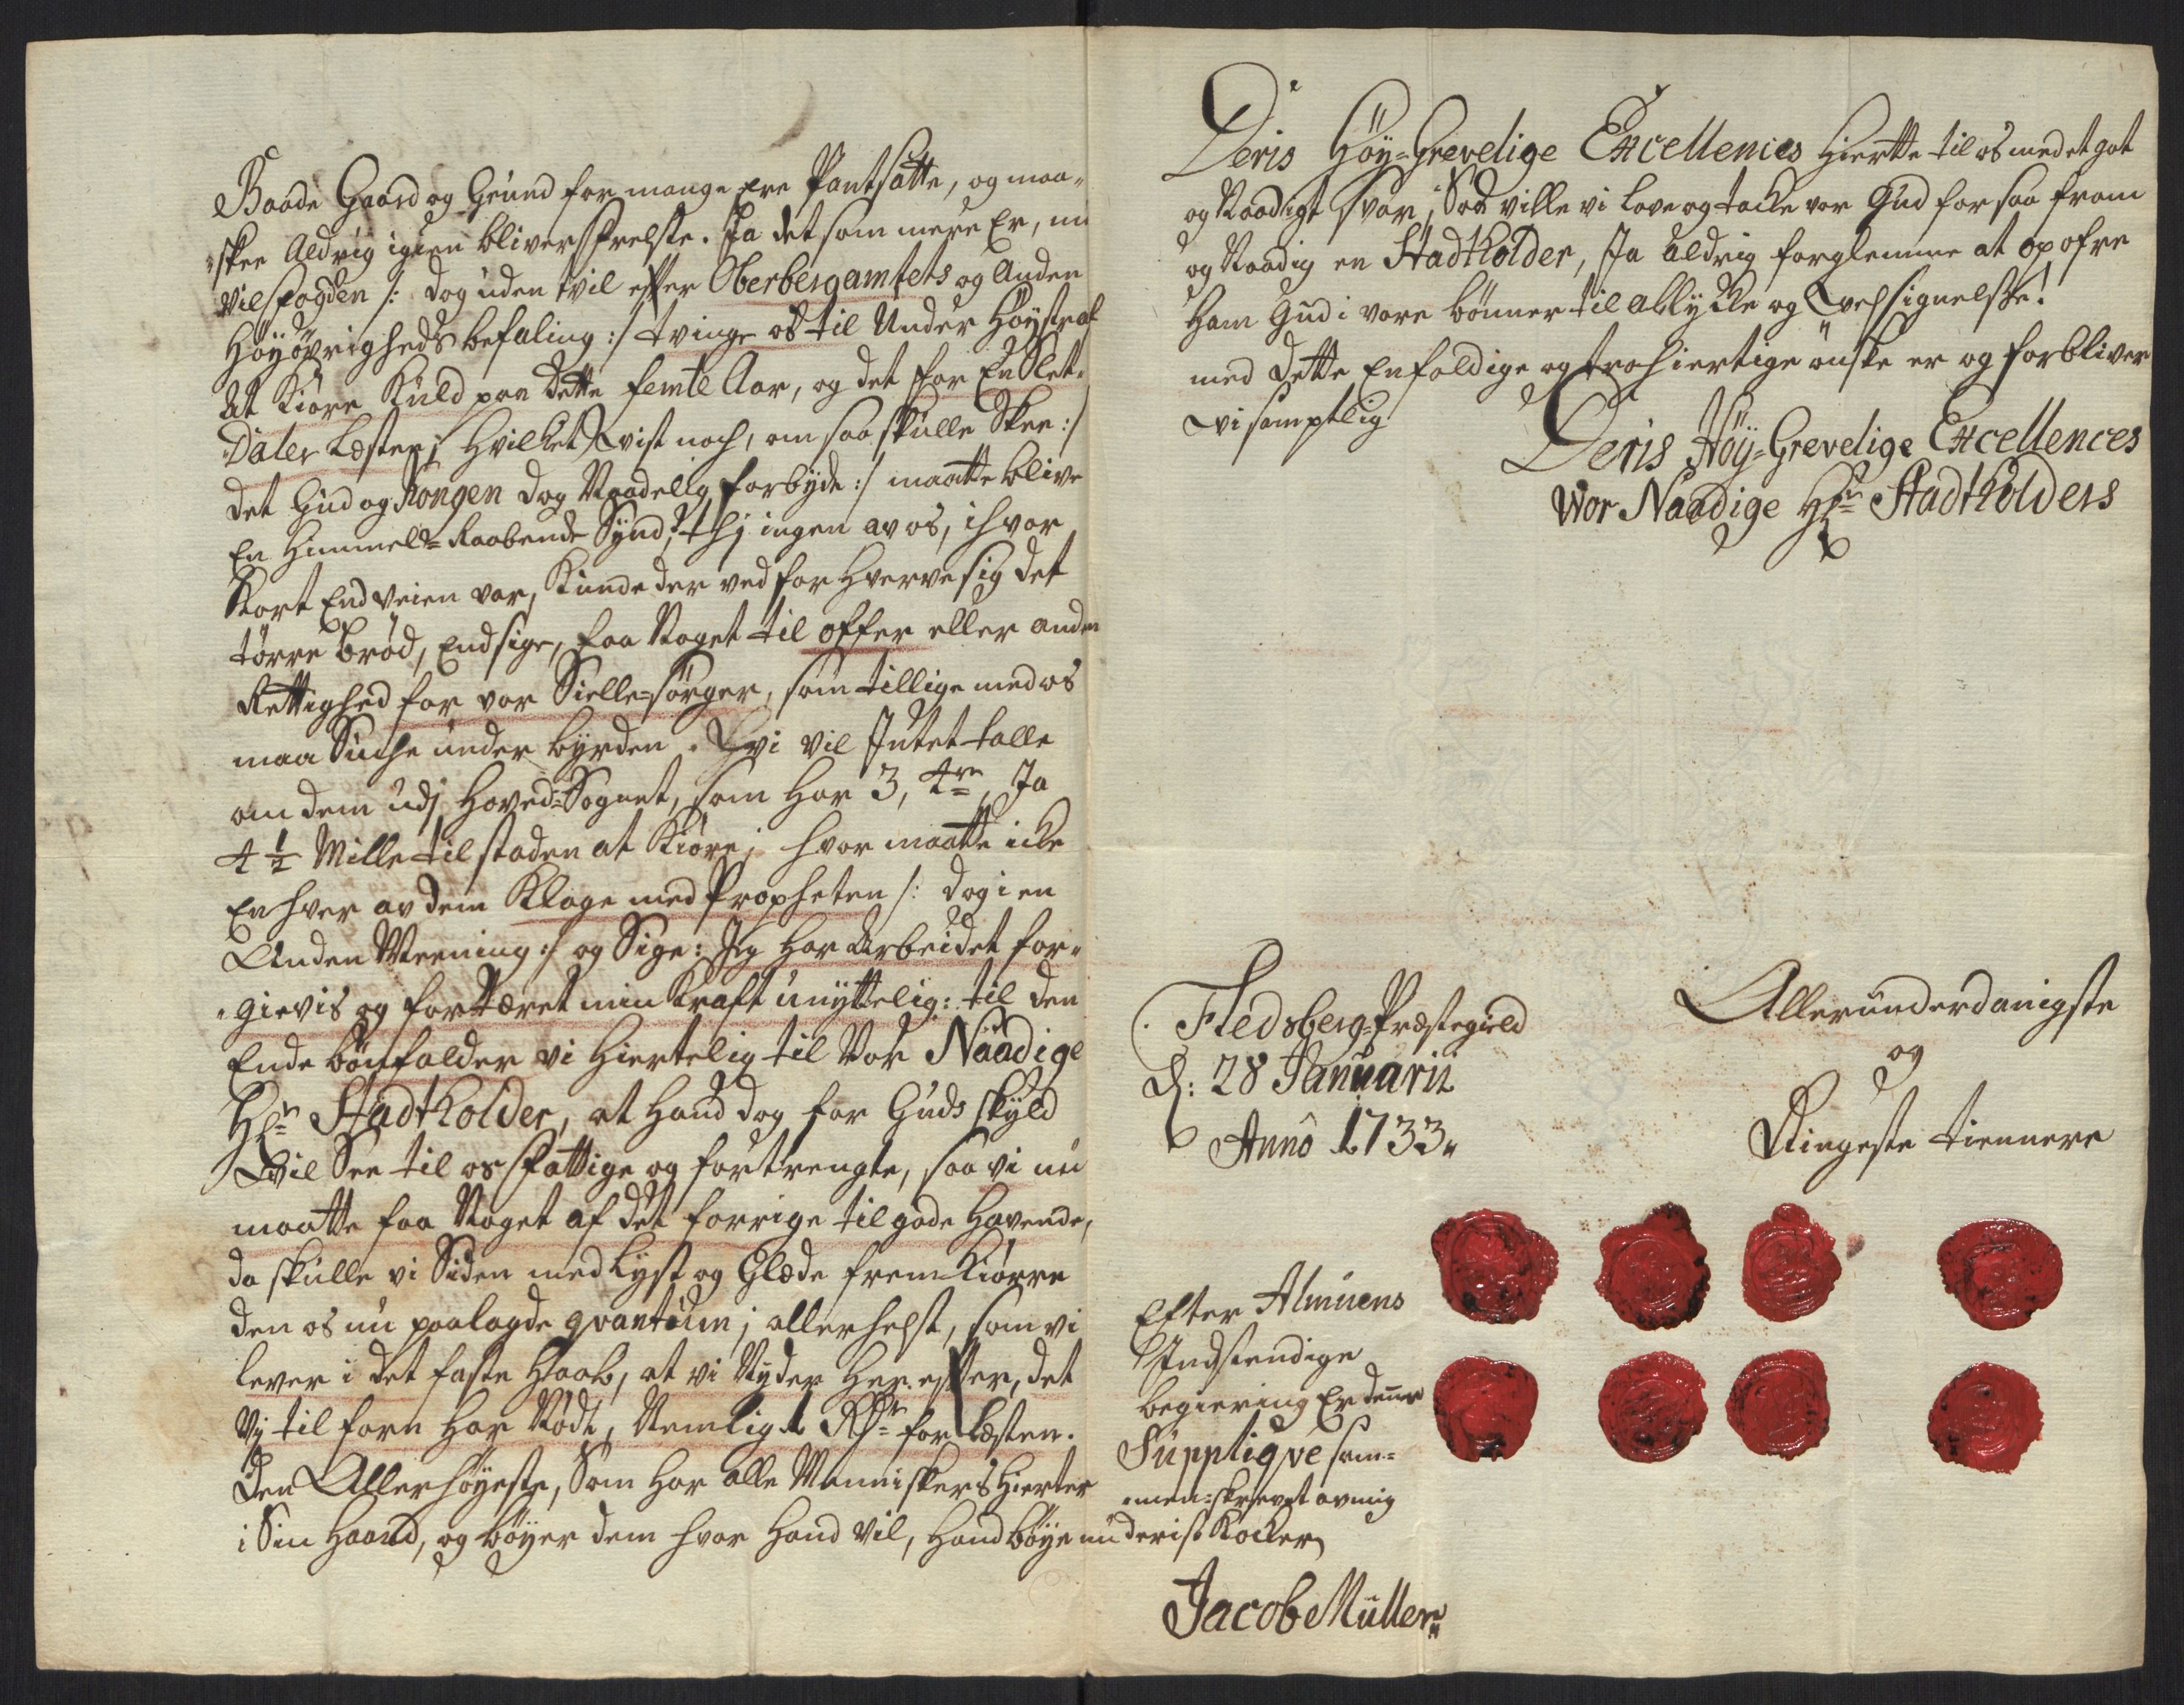 Baade Gaard og Grund for mange ere Pantsatte, og maa-
skee Aldrig igien bliver frelste. Ja det som mere Er, nu
vil fogden /: dog uden tvil efter Oberbergamtets og Anden
Höyövrigheds befaling :/ tvinge os til Under Höystraf
At Kiöre Kuld paa dette femte Aar, og det for En Slet-
Daler Læsten; hvilket vist noch, om saa skulle Skee :/
det Gud og Kongen dog Naadelig forbyde :/ maatte blive
En Himmel-Raabende Synd; thj ingen av os, ihvor
Kort End veien var, Kunde der ved forhverve sig det
törre bröd, End sige, faa Noget til offer eller anden
Rettighed for vor Sielle-sörger, som tillige med os
maa Sucke under byrden. Vi vil Intet talle
om dem udj Hoved-Sognet, som har 3, 4re, Ja
4 1/2 Mille til staden at Kiöre; hvor maatte icke
En hver av dem Klage med Propheten /: dog i en
Anden Meening :/ og Sige: Jeg har Arbeidet for-
gievis og fortæret min Kraft unyttelig: til den
Ende bönfalder vi Hiertelig til Vor Naadige
Hr Stadtholder, at Hand dog for Guds skyld
Vil See til os fattige og fortrengte, saa vi nu
maatte faa Noget af det forrige tilgode havende,
da skulle vi Siden med Lyst og Glæde fremkiörre
den os nu paalagde qvantum; allerhelst, som vi
lever i det faste Haab, at vi Nyder Her efter, det
Vj til forn har Nödt, Nemlig 1 Rdr for Læsten.
Den Allerhöyeste, Som har alle Menniskers Hierter
i Sin Haand, og böyer dem hvor Hand vil, Hand böye nu
Deris Höy-Grevelige Excellences Hiertte til os med et got
og Naadigt svar, Saa ville vi love og tacke vor Gud for saa from
og Naadig en Stadtholder, Ja aldrig forglemme at opofre
Ham Gud i vore bönner til all lycke og Velsignelse!
med dette Enfoldige og trohiertige önske er og forbliver
vi samptlig
Deris Höy-Grevelige Excellences
Wor Naadige Hr Stadtholders
Fledsberg-Præstegield
d: 28 Januarii
Anno 1733.
Allerunderdanigste
og
Ringeste tiennere
Efter Almuens
Indstendige
begiering Er denne
Suppliqve sam-
men-skrevet av mig
deris Kocker
Jacob Müller